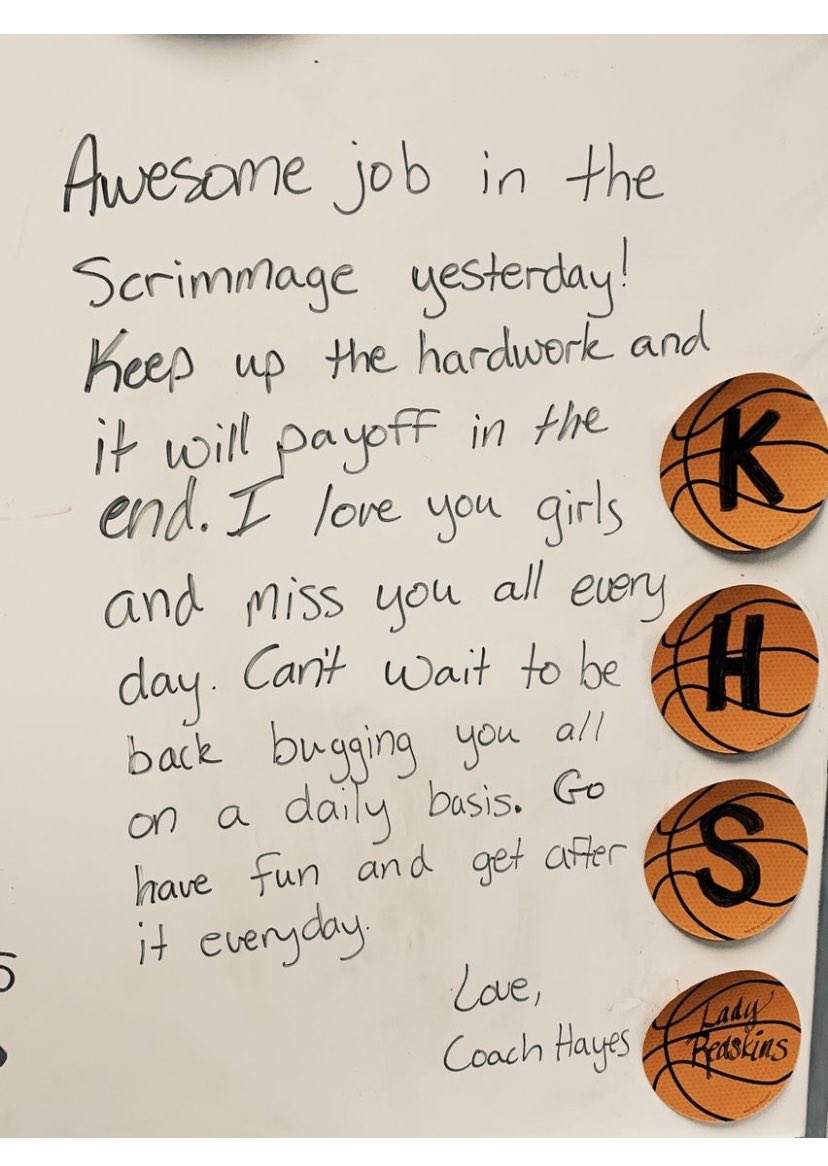 Awesome job in the
Scrimmage yesterday!
Keep up the hardwork and
it will payoff in the
end. I love you girls
and miss you all every
day. Can't wait to be
back bugging you all
on a daily basis. Go
have fun and get after
it everyday.
Love,
Coach Hayes
K
H
S
Lady
Redskins